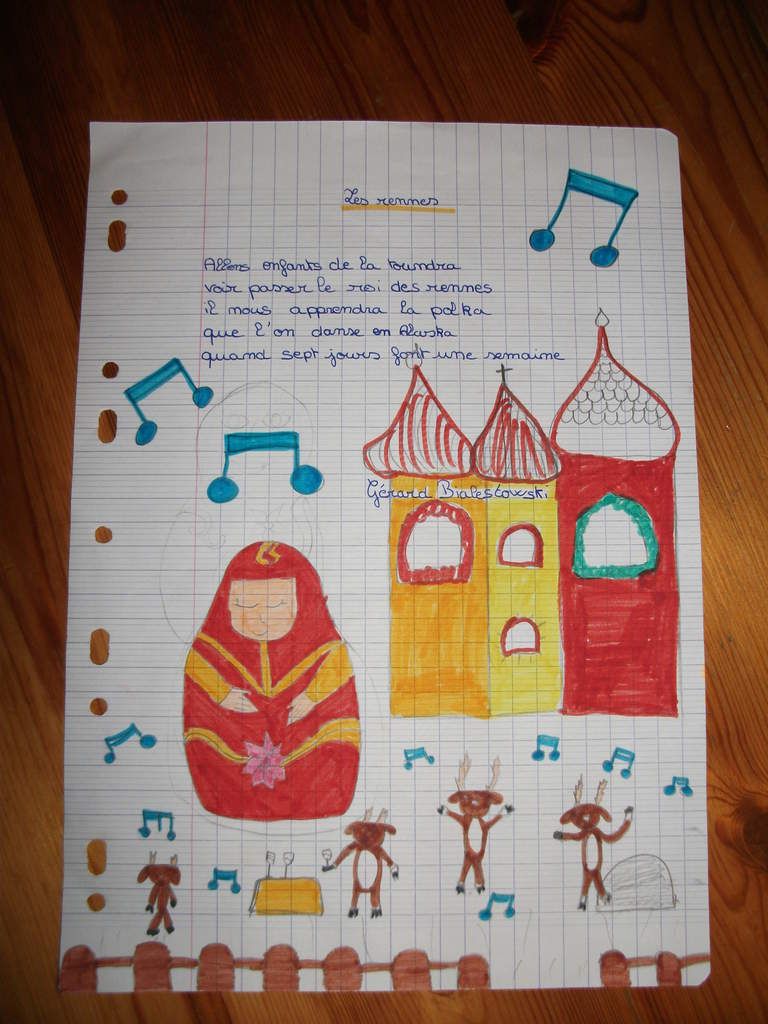 Les rennes
Allons enfants de la toundra
voir passer le roi des rennes
il nous apprendra la polka
que l'on danse en Alaska
quand sept jours font une semaine
Gérard Bialestowski